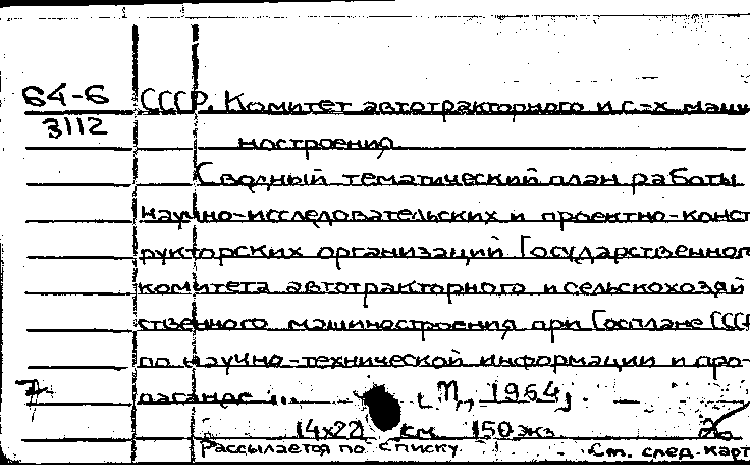 64-6 СССР. Комитет автотракторного и с.-х. маши
3112
ностроения.
Сводный тематический план работы
научно-исследовательских и проектно-конст
рукторских организаций Государственног
комитета автотракторного и сельскохозяй
ственного машиностроения при Госплане СССР
по научно-технической информации и про-
паганде ... [М., 1964].
14х22 см 150 экз
Рассылается по списку См. след. карт